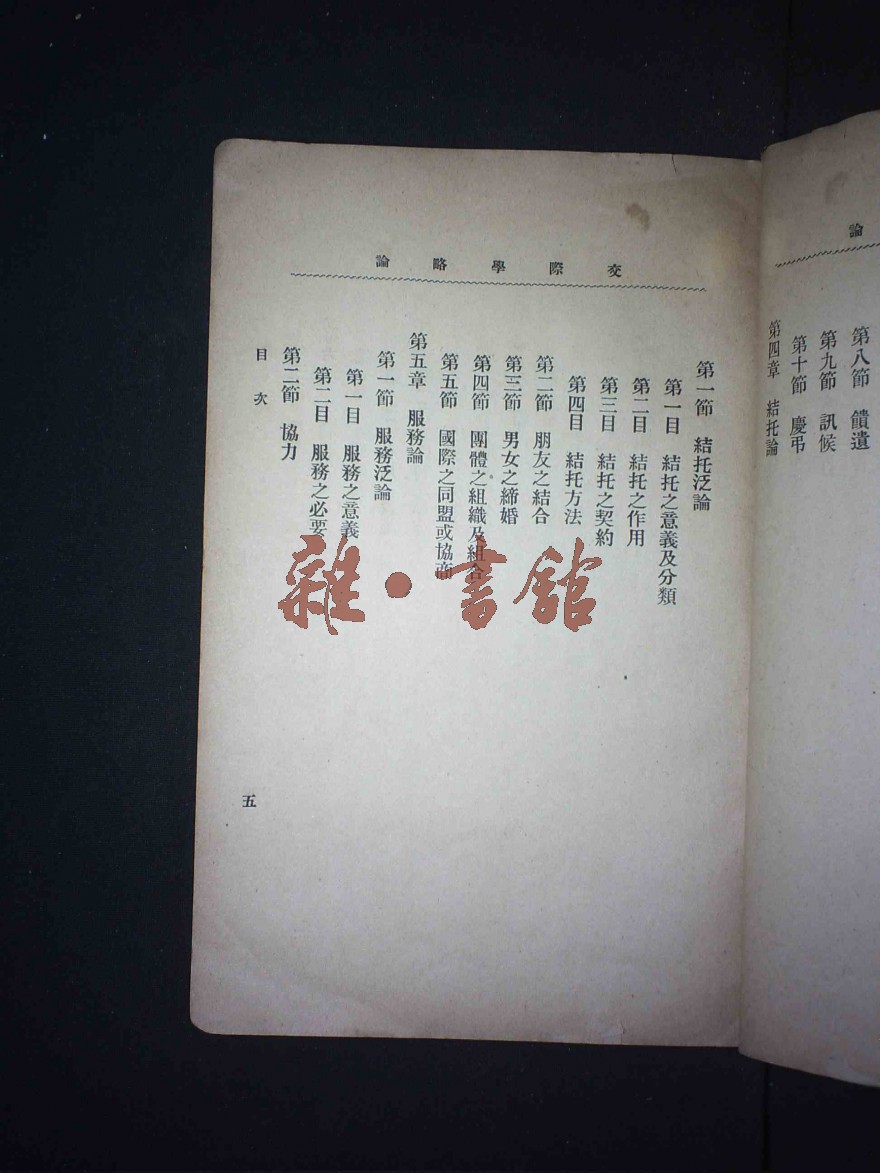 論
第八節　饋遺
第九節　訊候
第十節　慶弔
第四章　結托論
交際學略論
第一節　結托泛論
第一目　結托之意義及分類
第二目　結托之作用
第三目　結托之契約
第四目　結托方法
第二節　朋友之結合
第三節　男女之締婚
第四節　團體之組織及組合
第五節　國際之同盟或協商
第五章　服務論
第一節　服務泛論
第一目　服務之意義
第二目　服務之必要
第二節　協力
目次
五
雜·書館